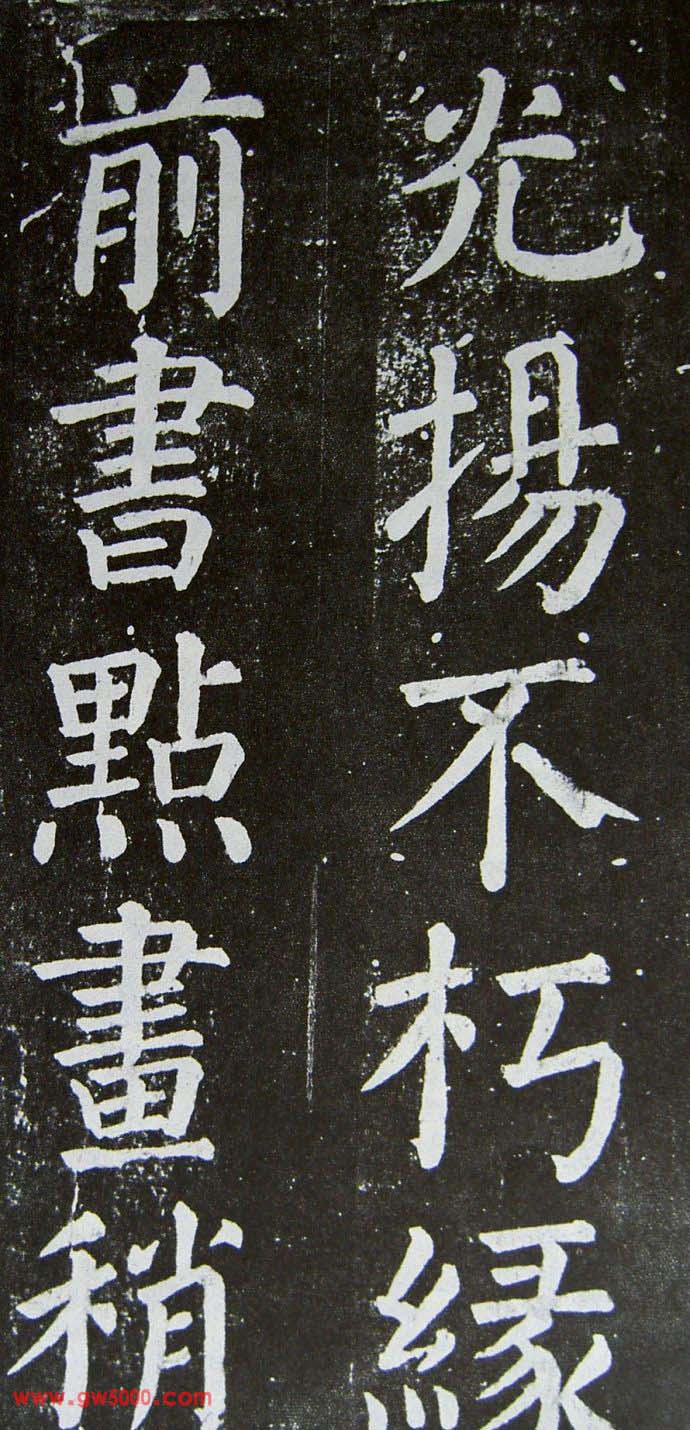 光揚不朽緣
前書點畫稍
www.gw5000.com